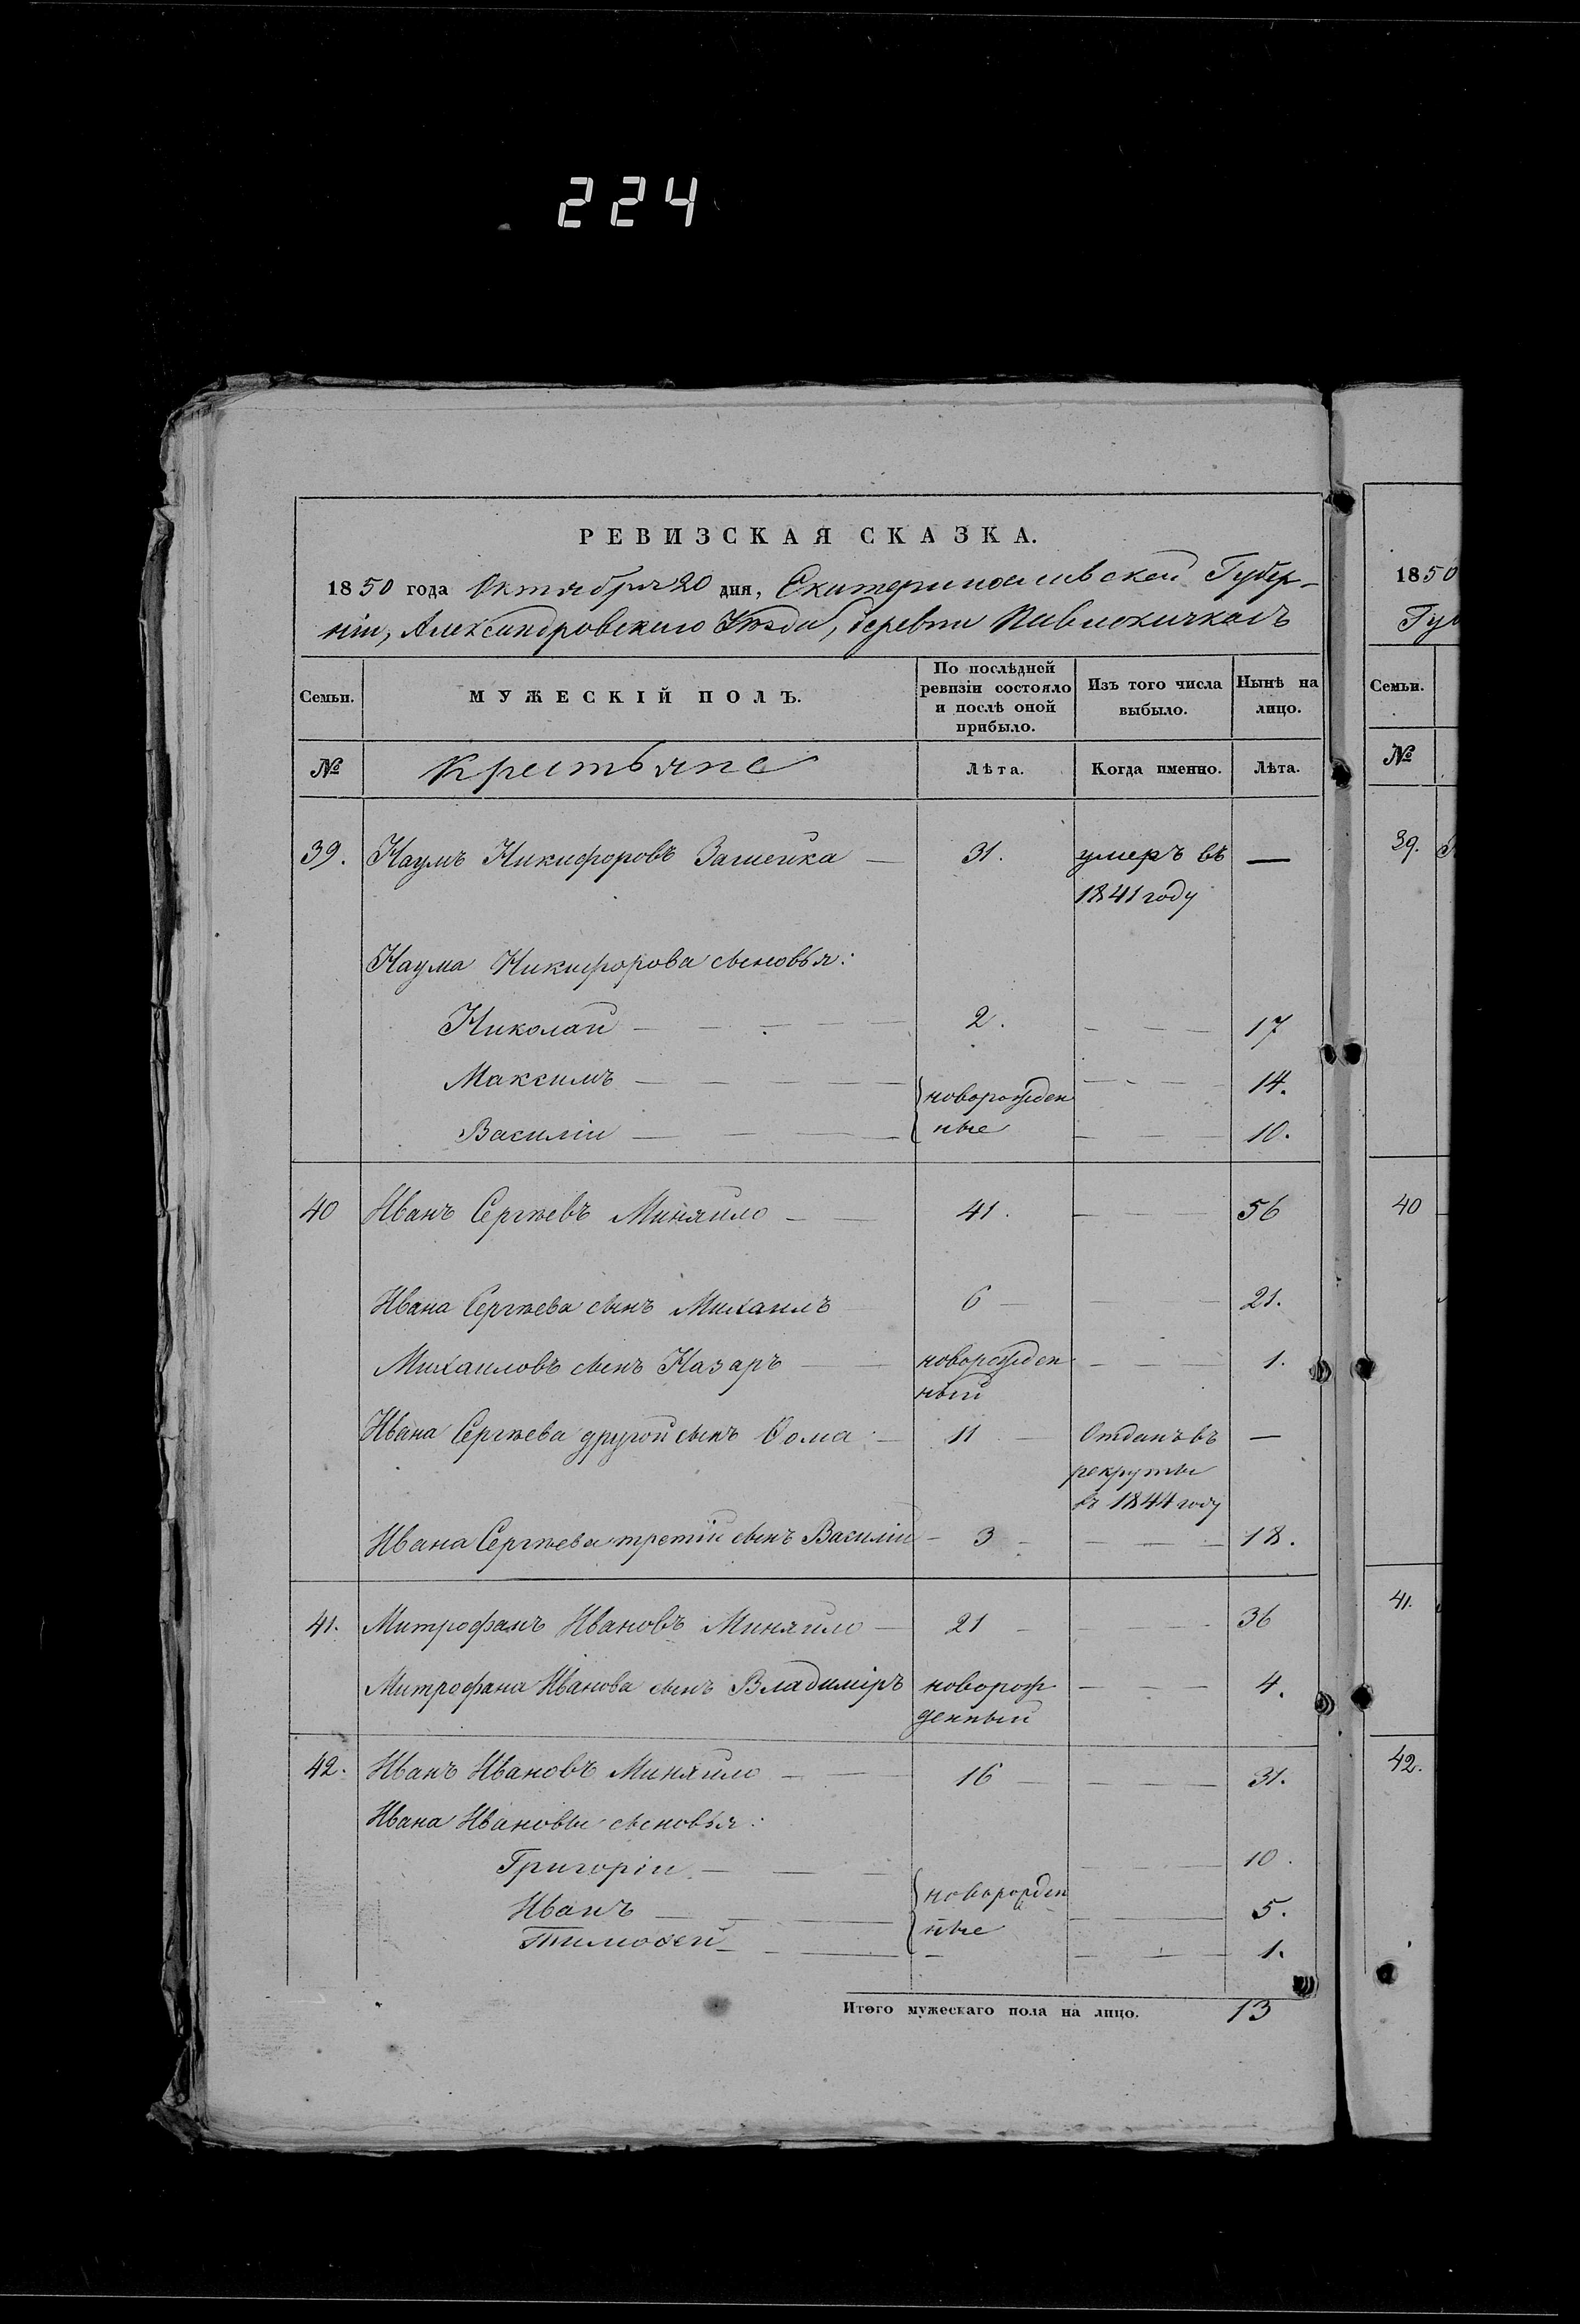 224
РЕВИЗСКАЯ СКАЗКА.
1850 года Октября 20 дня, Екатеринославской Губер-
ніи, Александровскаго Уѣзда, деревни Павлокичкасъ
Семьи. МУЖЕСКІЙ ПОЛЪ. По послѣдней ревизіи состояло и послѣ оной прибыло. Изъ того числа выбыло. Нынѣ на лицо.
№ Крестьяне Лѣта. Когда именно. Лѣта.
39. Наумъ Никифоровъ Зашейка — 31. умеръ въ —
1841 году
Наума Никифорова сыновья:
Николай — 2. — 17
Максимъ — новорожден — 14.
Василій — ные — 10.
40 Иванъ Сергѣевъ Миняйло — 41. — 56
Ивана Сергѣева сынъ Михаилъ 6 — 21.
Михаиловъ сынъ Назаръ — новорожден — 1.
ный
Ивана Сергѣева другой сынъ Ѳома — 11 — Отданъ въ —
рекруты
въ 1844 году
Ивана Сергѣева третій сынъ Василій — 3 — 18.
41. Митрофанъ Ивановъ Миняйло — 21 — 36
Митрофана Иванова сынъ Владиміръ новорож — 4.
денный
42. Иванъ Ивановъ Миняйло — 16 — 31.
Ивана Иванова сыновья:
Григорій — 10.
Иванъ — новорожден — 5.
Тимоѳей — ные — 1.
Итого мужескаго пола на лицо. 13
1850
Гу
Семьи.
№
39.
40
41.
42.